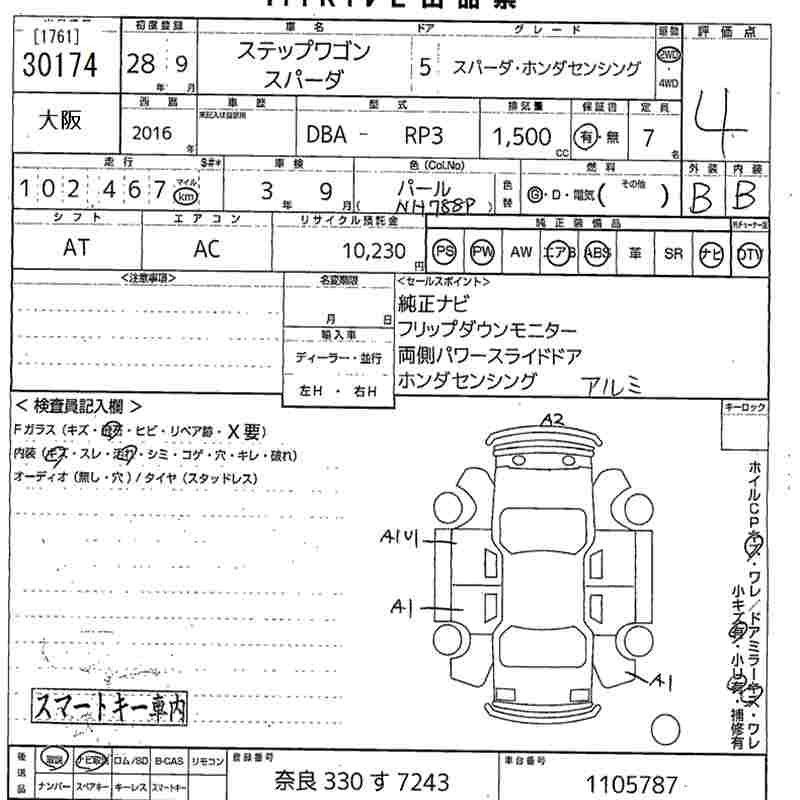 [1761]
30174
初度登録
28 9
年 月
車名
ステップワゴン
スパーダ
ドア
5
グレード
スパーダ・ホンダセンシング
2WD
・
4WD
評価点
4
大阪
西暦
2016
年
車歴
型式
DBA - RP3
排気量
1,500
CC
保証書
有・無
定員
7
名
走行
102,467
マイル
km
S#*
車検
3 9
年 月
色(Col.No)
パール
(NH788P)
色替
燃料
G・D・電気( その他 )
外装
B
内装
B
シフト
AT
エアコン
AC
リサイクル預託金
10,230
円
純正装備品
PS PW AW エアB ABS 革 SR ナビ
DTV
<注意事項>
名変期限
月 日
輸入車
ディーラー・並行
左H ・ 右H
<セールスポイント>
純正ナビ
フリップダウンモニター
両側パワースライドドア
ホンダセンシング アルミ
< 検査員記入欄 >
Fガラス (キズ・飛石・ヒビ・リペア跡・X要)
内装 (キズ・スレ・汚れ・シミ・コゲ・穴・キレ・破れ)
オーディオ (無し・穴) / タイヤ (スタッドレス)
キーロック
A2
A1U1
A1
A1
ホイルCPキズ・ワレ/ドアミラーキズ・ワレ
小キズ有・小U有・補修有
スマートキー車内
後送品
取説 ナビ取説 ロム/SD B-CAS リモコン
ナンバー スペアキー キーレス スマートキー
登録番号
奈良 330 す 7243
車台番号
1105787